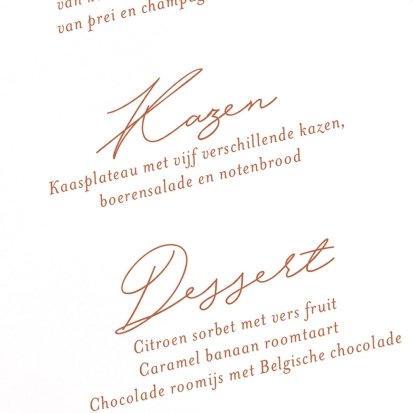 van prei en champag
Kazen
Kaasplateau met vijf verschillende kazen,
boerensalade en notenbrood
Dessert
Citroen sorbet met vers fruit
Caramel banaan roomtaart
Chocolade roomijs met Belgische chocolade